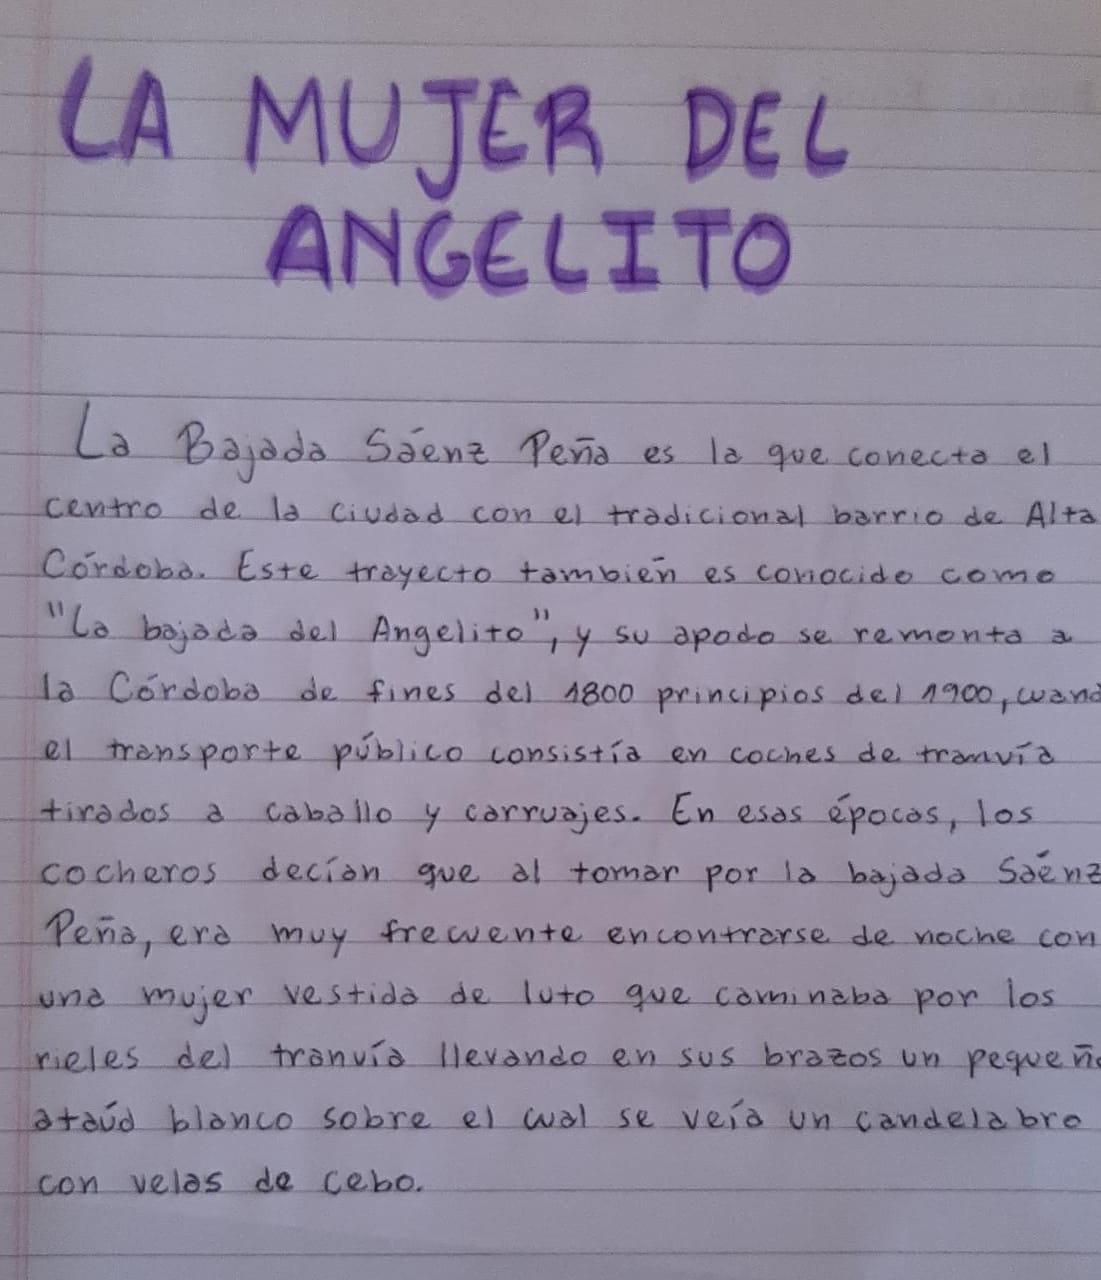 LA MUJER DEL
ANGELITO
La Bajada Sáenz Peña es la que conecta el
centro de la ciudad con el tradicional barrio de Alta
Córdoba. Este trayecto también es conocido como
"La bajada del Angelito", y su apodo se remonta a
la Córdoba de fines del 1800 principios del 1900, cuand
el transporte público consistía en coches de tranvía
tirados a caballo y carruajes. En esas épocas, los
cocheros decían que al tomar por la bajada Saénz
Peña, era muy frecuente encontrarse de noche con
una mujer vestida de luto que caminaba por los
rieles del tranvía llevando en sus brazos un pequeño
ataúd blanco sobre el cual se veía un candelabro
con velas de cebo.